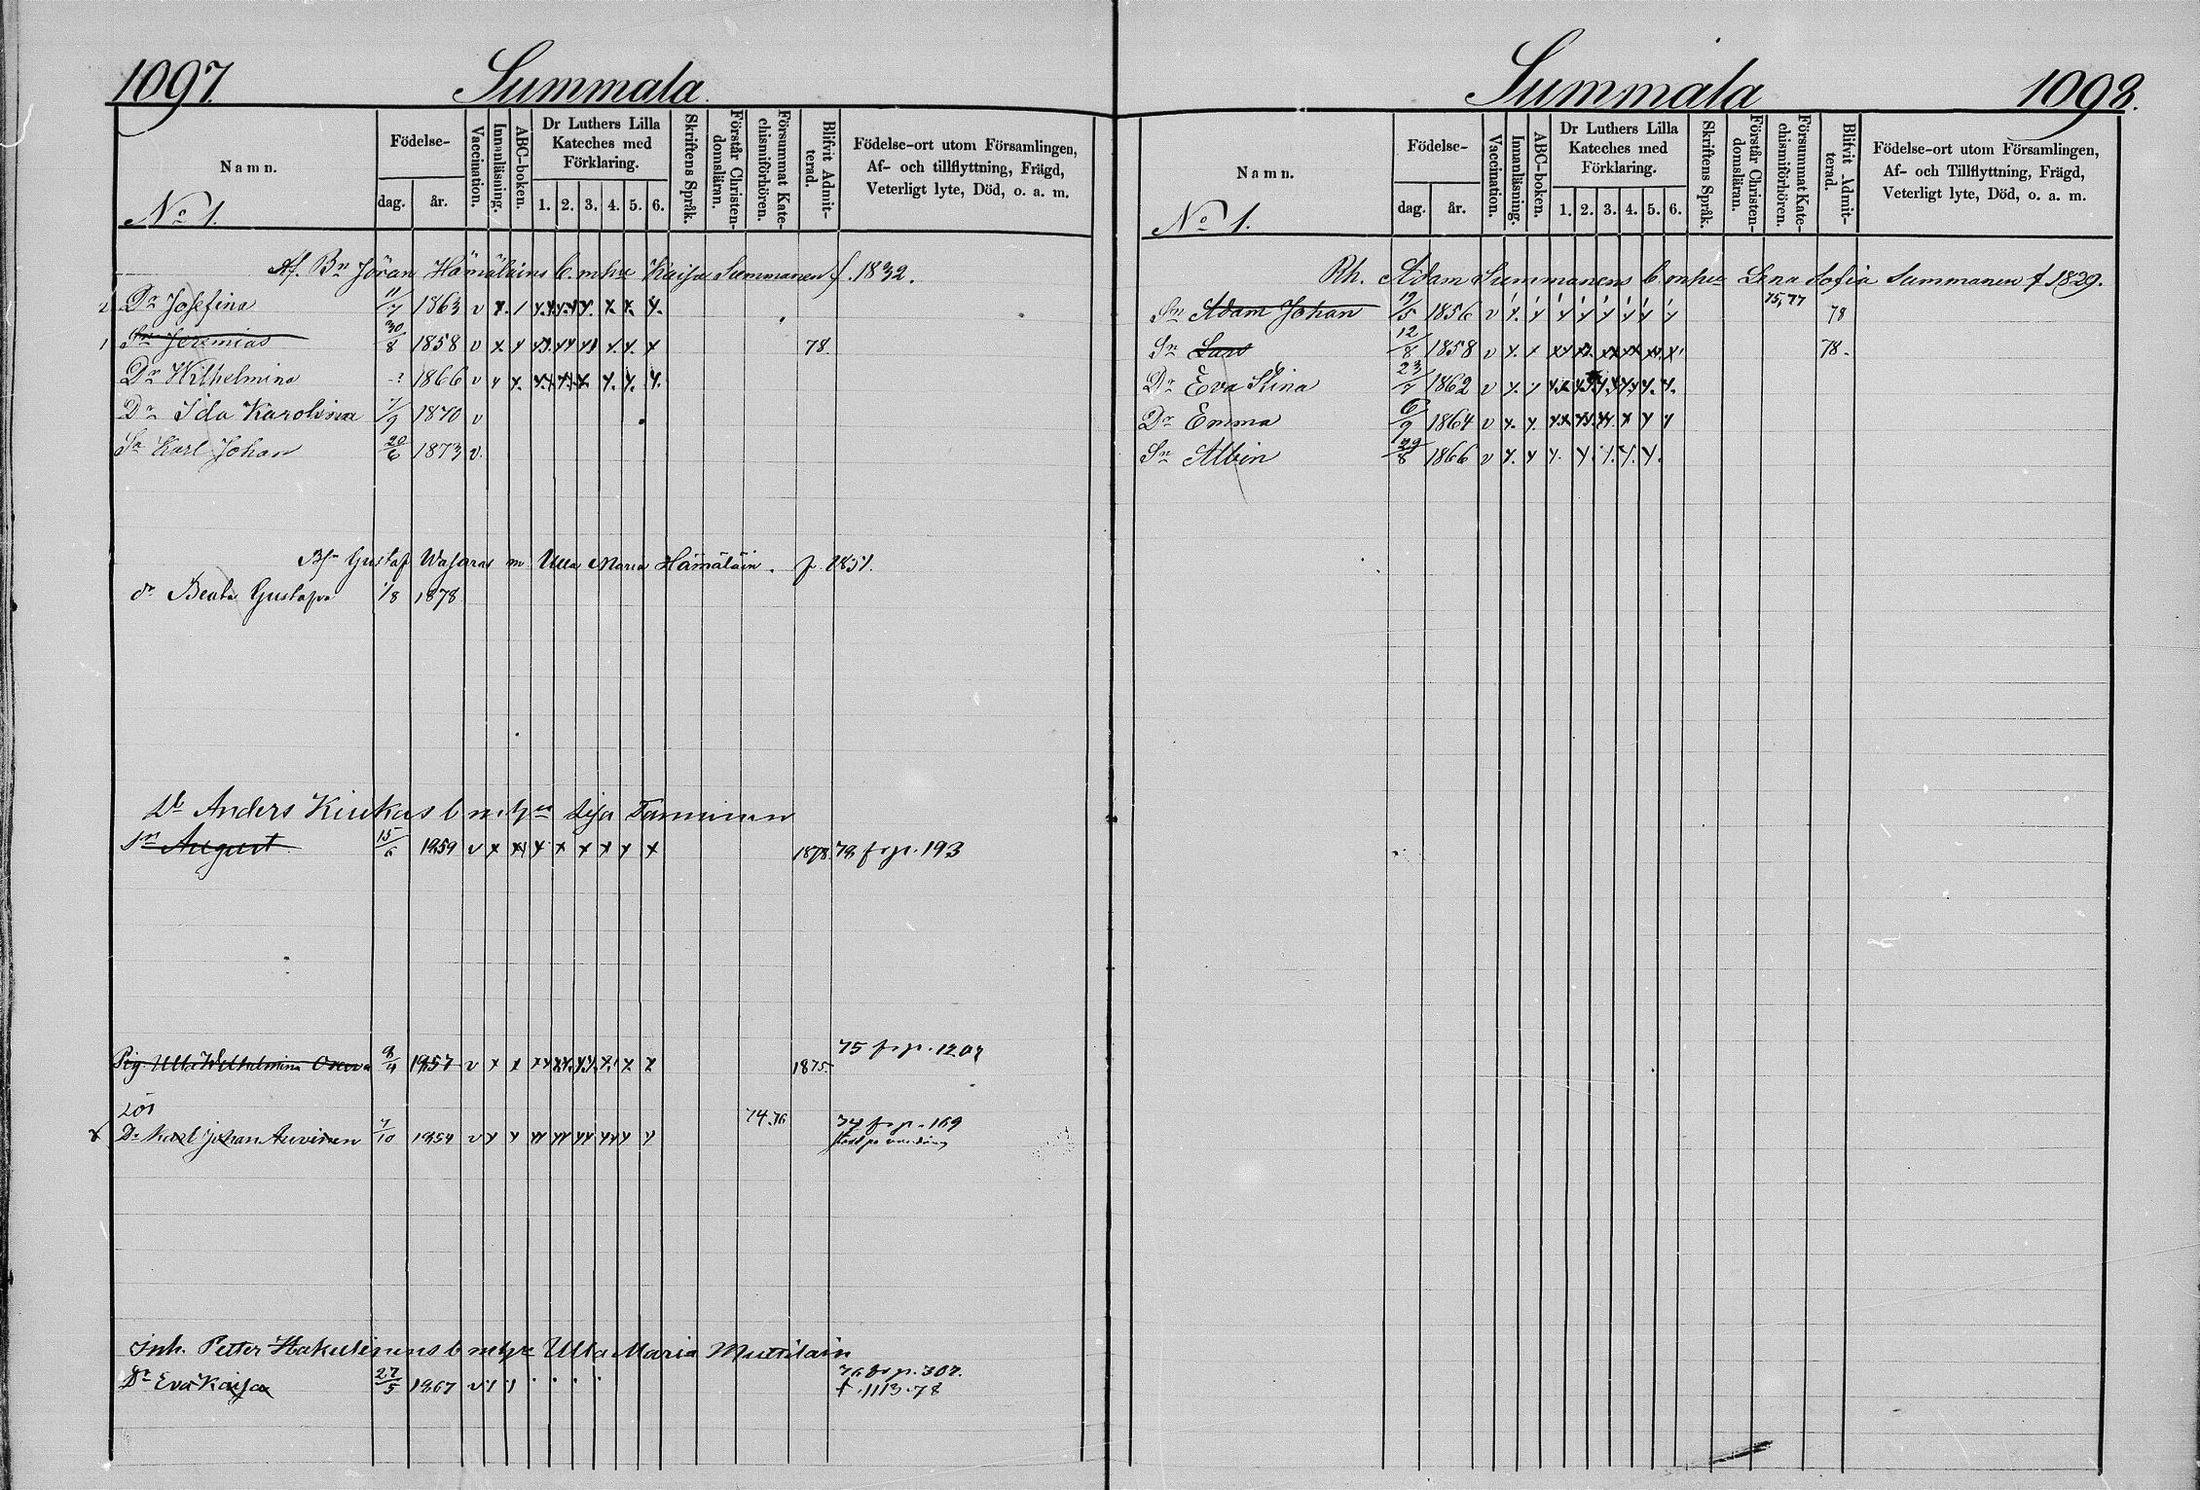 1097.
Summala.
Namn.
Födelse-
dag.
år.
Vaccination.
Innanläsning.
ABC-boken.
Dr Luthers Lilla
Kateches med
Förklaring.
1. 2. 3. 4. 5. 6.
Skriftens Språk.
Förstår Christen-
domsläran.
Försummat Kate-
chismiförhören.
Blifvit Admit-
terad.
Födelse-ort utom Församlingen,
Af- och tillflyttning, Frägd,
Veterligt lyte, Död, o. a. m.
No 1.
Af. Bn Jöran Hämäläins b. m hu Kaisa Summanen f. 1832.
2 Dr Josefina 11/7 1863 v x
1 Sn Jeremias 30/8 1858 v x 78.
Dr Wilhelmina -? 1866 v x
Dr Ida Karolina 7/9 1870 v
Sn Karl Johan 20/6 1873 v.
Gustaf m Ulla Maria Hämäläin. f. 1851.
dr Beata Gustafva 1/8 1878
Anders Kiukas b m h Tanninen
Sn August 15/6 1859 v x 1878. 78 fr p. 193
75 fr p. 1207
Pig. Ulla Wilhelmina 9/4 1857 v x 1875
Lös
74.76
74 fr p. 169
Dr Karl Johan Auvinen 7/10 1854 v x
Inh. Petter Hakulinens b m h Ulla Maria Muttilain
76 fr p. 307.
Dr Eva Kaisa 27/5 1867 v
78
Summala
1098.
Namn.
Födelse-
dag.
år.
Vaccination.
Innanläsning.
ABC-boken.
Dr Luthers Lilla
Kateches med
Förklaring.
1. 2. 3. 4. 5. 6.
Skriftens Språk.
Förstår Christen-
domsläran.
Försummat Kate-
chismiförhören.
Blifvit Admit-
terad.
Födelse-ort utom Församlingen,
Af- och Tillflyttning, Frägd,
Veterligt lyte, Död, o. a. m.
No 1.
Rh. Adam Summanens b m hu Lena Sofia Summanen f 1829.
75,77
Sn Adam Johan 1856 v 78
Sn Lars 12/8 1858 v 78.
Dr Eva Stina 23/7 1862 v
Dr Emma 6/9 1864 v
Sn Albin 29/8 1866 v